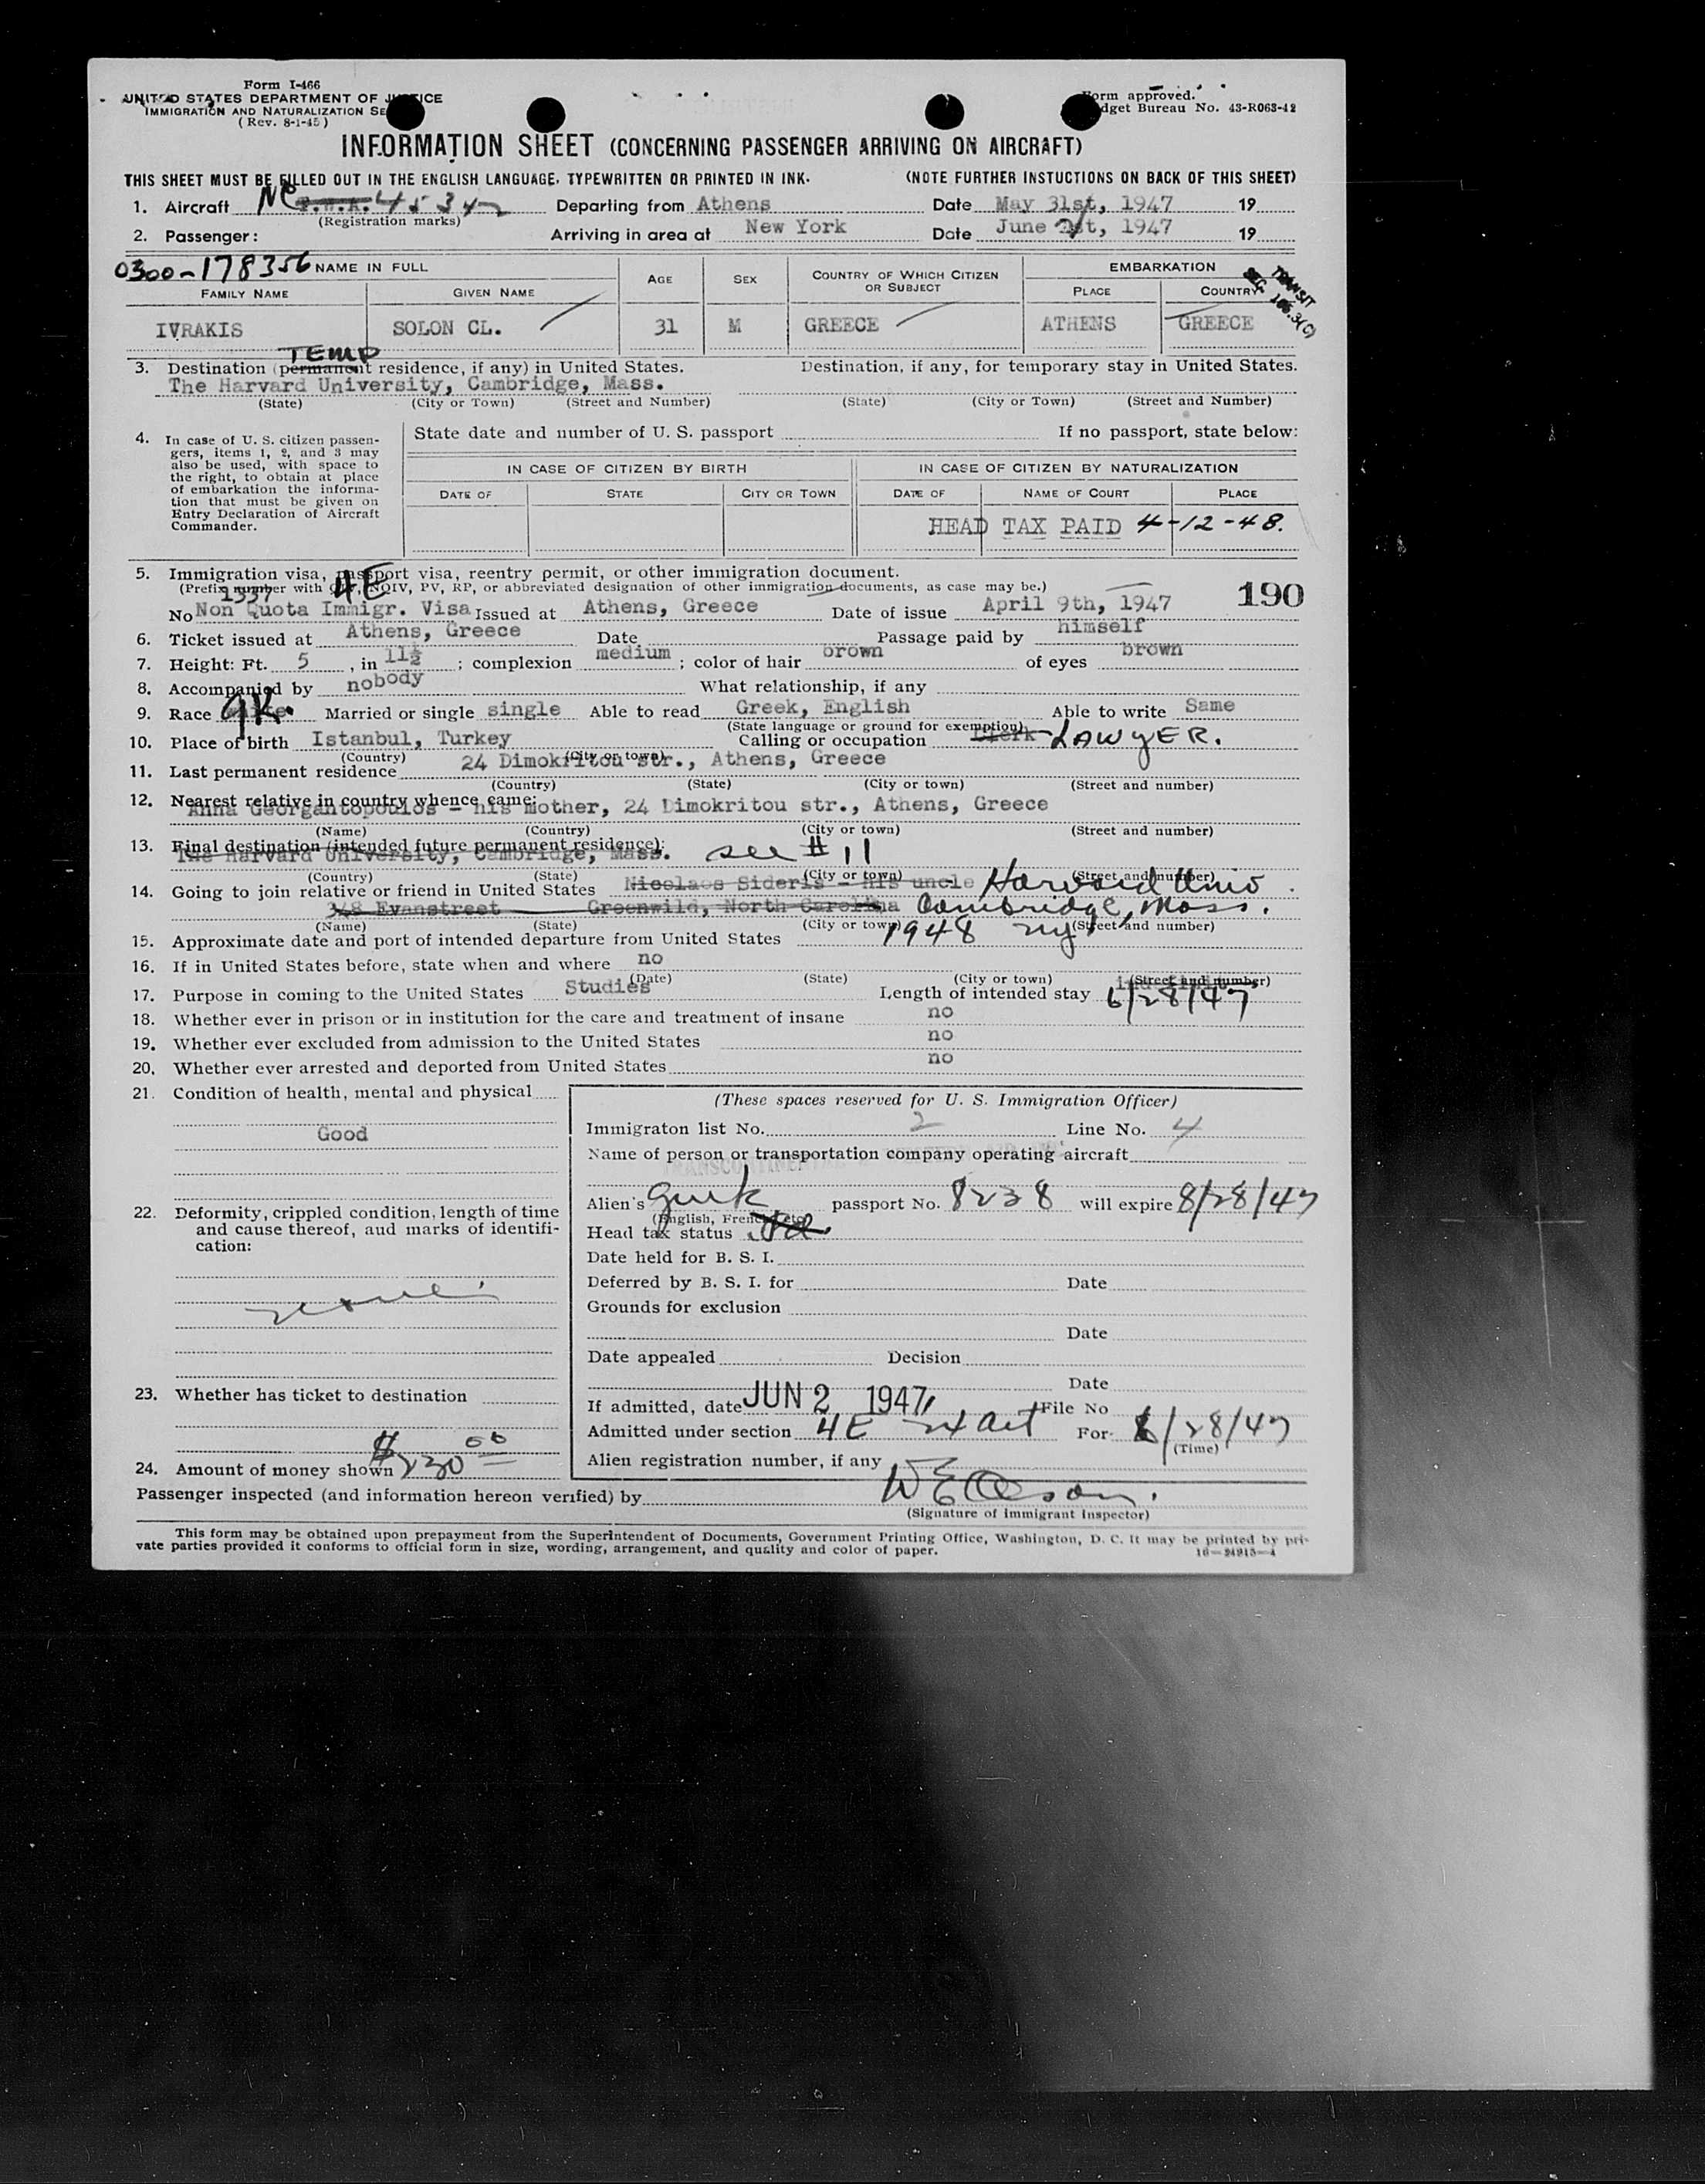 Form I-466
UNITED STATES DEPARTMENT OF JUSTICE
IMMIGRATION AND NATURALIZATION SE
(Rev. 8-1-45)
Form approved.
dget Bureau No. 43-R063-42
INFORMATION SHEET (CONCERNING PASSENGER ARRIVING ON AIRCRAFT)
THIS SHEET MUST BE FILLED OUT IN THE ENGLISH LANGUAGE. TYPEWRITTEN OR PRINTED IN INK. (NOTE FURTHER INSTUCTIONS ON BACK OF THIS SHEET)
1. Aircraft NC T.W.A. 45342 Departing from Athens Date May 31st, 1947 19
(Registration marks)
2. Passenger: Arriving in area at New York Date June 21st, 1947 19
0300-178356 NAME IN FULL AGE SEX COUNTRY OF WHICH CITIZEN OR SUBJECT EMBARKATION
TRANSIT SEC. 106.3(C)
FAMILY NAME GIVEN NAME PLACE COUNTRY
IVRAKIS SOLON CL. 31 M GREECE ATHENS GREECE
TEMP
3. Destination (permanent residence, if any) in United States. Destination, if any, for temporary stay in United States.
The Harvard University, Cambridge, Mass.
(State) (City or Town) (Street and Number) (State) (City or Town) (Street and Number)
4. In case of U. S. citizen passengers, items 1, 2, and 3 may also be used, with space to the right, to obtain at place of embarkation the information that must be given on Entry Declaration of Aircraft Commander.
State date and number of U. S. passport If no passport, state below:
IN CASE OF CITIZEN BY BIRTH IN CASE OF CITIZEN BY NATURALIZATION
DATE OF STATE CITY OR TOWN DATE OF NAME OF COURT PLACE
HEAD TAX PAID 4-12-48.
5. Immigration visa, passport visa, reentry permit, or other immigration document.
(Prefix number with QIV, NQIV, PV, RP, or abbreviated designation of other immigration documents, as case may be.)
1337 4E 190
No Non Quota Immigr. Visa Issued at Athens, Greece Date of issue April 9th, 1947
6. Ticket issued at Athens, Greece Date Passage paid by himself
7. Height: Ft. 5, in 11½; complexion medium; color of hair brown of eyes brown
8. Accompanied by nobody What relationship, if any
9. Race GK. Married or single single Able to read Greek, English Able to write Same
(State language or ground for exemption)
10. Place of birth Istanbul, Turkey Calling or occupation Clerk LAWYER.
(Country) (City or town)
11. Last permanent residence 24 Dimokritou str., Athens, Greece
(Country) (State) (City or town) (Street and number)
12. Nearest relative in country whence came:
Anna Georgantopoulos - his mother, 24 Dimokritou str., Athens, Greece
(Name) (Country) (City or town) (Street and number)
13. Final destination (intended future permanent residence):
The Harvard University, Cambridge, Mass. see #11
(Country) (State) (City or town) (Street and number)
14. Going to join relative or friend in United States Nicolaos Sideris - his uncle Harvard Univ.
348 Evanstreet Greenwild, North Carolina Cambridge, Mass.
(Name) (State) (City or town) (Street and number)
15. Approximate date and port of intended departure from United States 1948 NY
16. If in United States before, state when and where no
(Date) (State) (City or town) (Street and number)
17. Purpose in coming to the United States Studies Length of intended stay 6/28/47
18. Whether ever in prison or in institution for the care and treatment of insane no
19. Whether ever excluded from admission to the United States no
20. Whether ever arrested and deported from United States no
21. Condition of health, mental and physical
Good
22. Deformity, crippled condition, length of time and cause thereof, aud marks of identification:
none
23. Whether has ticket to destination
24. Amount of money shown $230.00
(These spaces reserved for U. S. Immigration Officer)
Immigraton list No. 2 Line No. 4
Name of person or transportation company operating aircraft
Alien's Greek passport No. 8238 will expire 8/28/47
(English, French, etc.)
Head tax status
Date held for B. S. I.
Deferred by B. S. I. for Date
Grounds for exclusion
Date
Date appealed Decision
Date
If admitted, date JUN 2 1947 File No
Admitted under section 4E 24 Act For 6/28/47
(Time)
Alien registration number, if any
Passenger inspected (and information hereon verified) by
(Signature of Immigrant Inspector)
This form may be obtained upon prepayment from the Superintendent of Documents, Government Printing Office, Washington, D. C. It may be printed by private parties provided it conforms to official form in size, wording, arrangement, and quality and color of paper.
16—24915—4